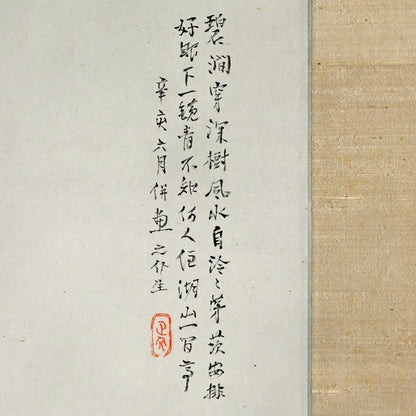 碧澗穿深樹風水自泠〻茅茨安排
好眼下一鏡青不知何人住湖山一習亭
辛亥六月併畫